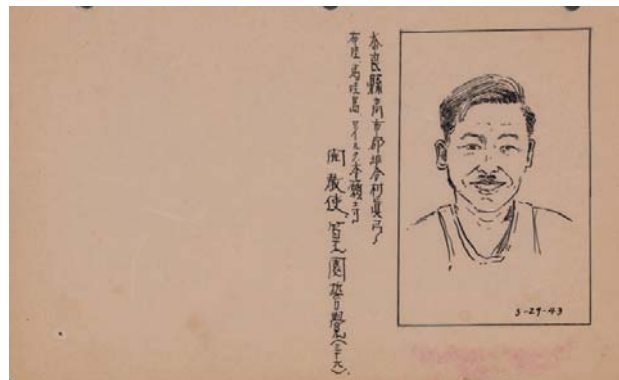 奈良縣高市郡坂合村真弓
布哇、馬哇島 ワイルク本願寺
開教使
(三十六)
3-29-43